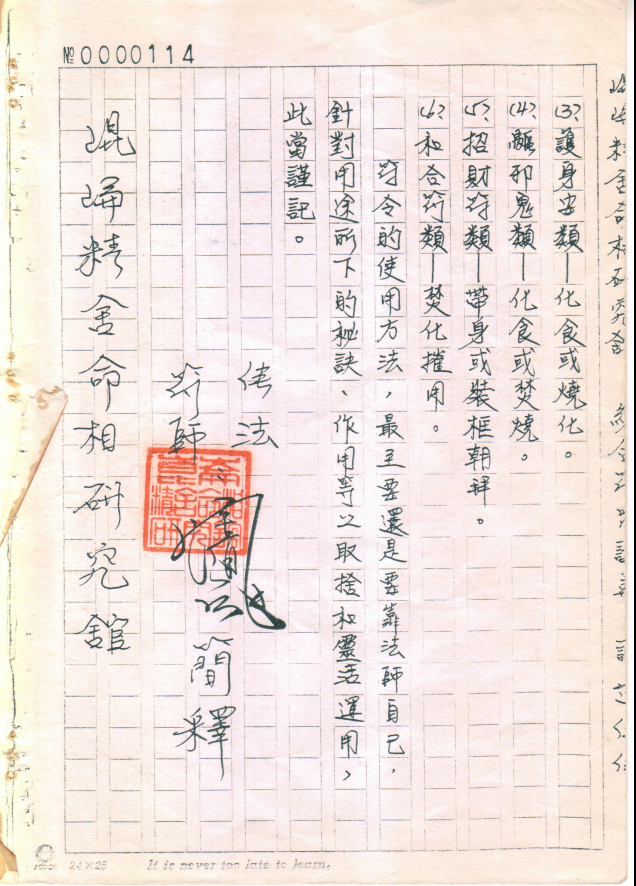 №0000114
(3)、護身安類—化食或燒化。
(4)、離邪鬼類—化食或焚燒。
(5)、招財符類—帶身或裝框朝拜。
(6)、和合符類—焚化摧用。
符令的使用方法，最主要還是要靠法師自己，
針對用途所下的秘訣、作用等以取捨和靈活運用，
此當謹記。
傳法
符師：
簡釋
崐崘精舍命相研究舘
24×25
It is never too late to learn.